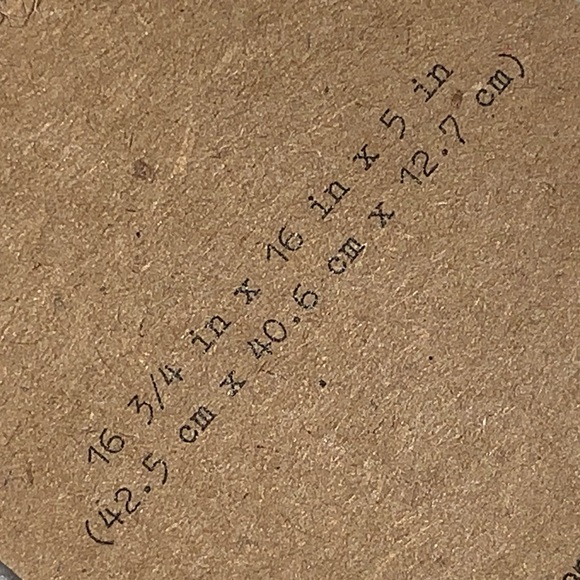 16 3/4 in x 16 in x 5 in
(42.5 cm x 40.6 cm x 12.7 cm)